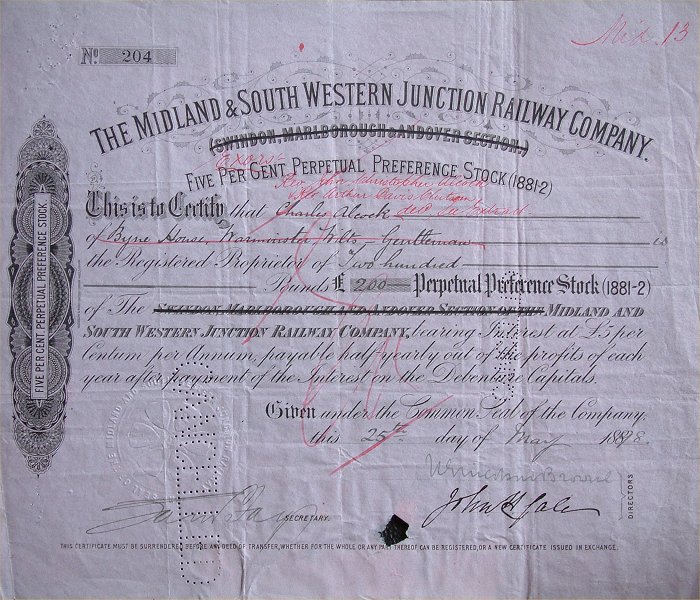 Mid. 13
No. 204
THE MIDLAND & SOUTH WESTERN JUNCTION RAILWAY COMPANY.
(SWINDON, MARLBOROUGH & ANDOVER SECTION.)
Exors
FIVE PER CENT PERPETUAL PREFERENCE STOCK (1881-2)
Rev. John Christopher Alcock
Arthur Davis
This is to Certify that Charles Alcock decd
of Byne House, Warminster Wilts - Gentleman is
the Registered Proprietor of Two hundred
Pounds £ 200 Perpetual Preference Stock (1881-2)
of The SWINDON, MARLBOROUGH AND ANDOVER SECTION OF THE MIDLAND AND
SOUTH WESTERN JUNCTION RAILWAY COMPANY, bearing Interest at £5 per
Centum per Annum, payable half-yearly out of the profits of each
year after payment of the Interest on the Debenture Capitals.
Given under the Common Seal of the Company,
this 25th day of May 1898.
FIVE PER CENT PERPETUAL PREFERENCE STOCK.
CANCELLED
Brown
John H Gale
DIRECTORS
SECRETARY.
THIS CERTIFICATE MUST BE SURRENDERED BEFORE ANY DEED OF TRANSFER, WHETHER FOR THE WHOLE OR ANY PART THEREOF CAN BE REGISTERED, OR A NEW CERTIFICATE ISSUED IN EXCHANGE.